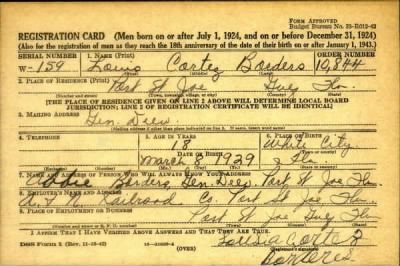 FORM APPROVED
Budget Bureau No. 33-R012-42
REGISTRATION CARD (Men born on or after July 1, 1924, and on or before December 31, 1924)
(Also for the registration of men as they reach the 18th anniversary of the date of their birth on or after January 1, 1943.)
SERIAL NUMBER 1. NAME (Print) ORDER NUMBER
W-159 Louis Cortez Borders
(First) (Middle) (Last)
2. PLACE OF RESIDENCE (Print)
Port St Joe Fla.
[THE PLACE OF RESIDENCE GIVEN ON LINE 2 ABOVE WILL DETERMINE LOCAL BOARD
JURISDICTION; LINE 2 OF REGISTRATION CERTIFICATE WILL BE IDENTICAL]
3. MAILING ADDRESS
Gen. Del.
4. TELEPHONE 5. AGE IN YEARS 6. PLACE OF BIRTH
18 White City
DATE OF BIRTH
March 8 Fla.
7. NAME OF PERSON WHO WILL ALWAYS KNOW YOUR ADDRESS
Borders Gen. Port St Joe Fla
8. EMPLOYER'S NAME AND ADDRESS
Railroad Co. Port St Joe Fla.
9. PLACE OF EMPLOYMENT OR BUSINESS
Port St Joe, Fla.
I AFFIRM THAT I HAVE VERIFIED ABOVE ANSWERS AND THAT THEY ARE TRUE.
DSS FORM 1
(OVER)
Cortez
Borders